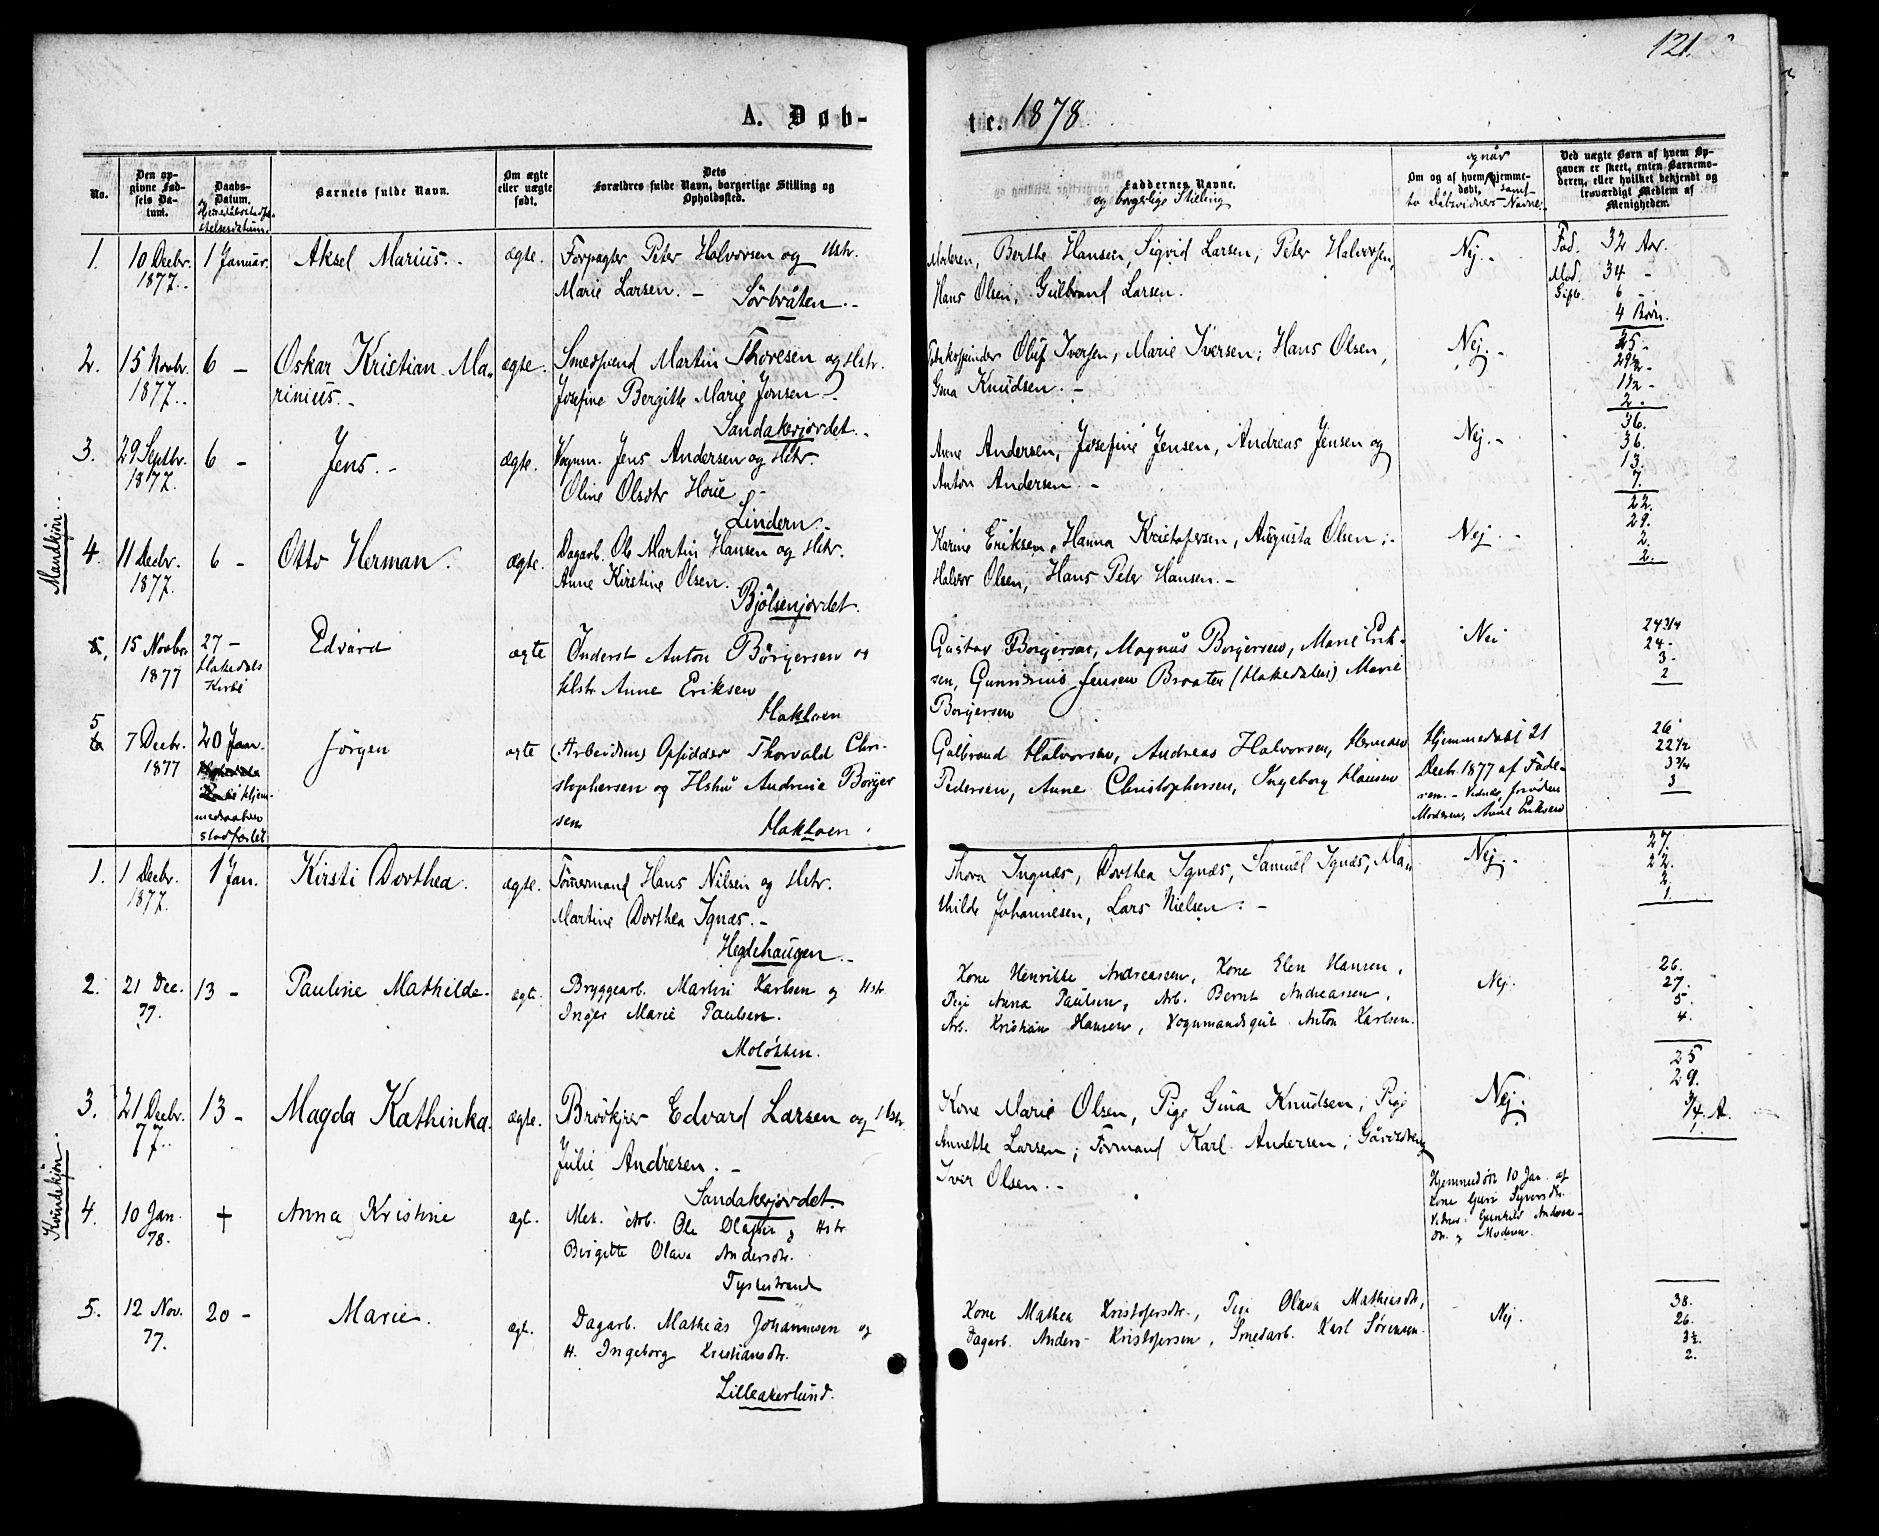 121.
A. Døb-
te. 1878.
No.
Den op-
givne Fød-
sels Da-
tum.
Daabs-
Datum.
Barnets fulde Navn.
Om ægte
eller uægte
født.
Dets
Forældres fulde Navn, borgerlige Stilling og
Opholdssted.
Faddernes Navne.
og borgerlige Stilling
og når
Om og af hvem hjemme-
døbt, samt
to Dåbsvidners Navne.
Ved uægte Børn af hvem Op-
gaven er skeet, enten Barnemo-
deren, eller hvilket bekjendt og
troværdigt Medlem af
Menigheden.
Mandkjøn.
1. 10 Decbr. 1 Januar. Aksel Marius. ægte. Forpagter Peter Halvorsen og Hstr.
1877. Marie Larsen. – Sörbråten. –
Moderen, Berthe Hansen, Sigvid Larsen; Peter Halvorsen,
Hans Olsen, Gulbrand Larsen.
Nej. –
Fad. 32 Aar.
Mod. 34 –
Gift. 6 –
4 Börn.
2. 15 Novbr. 6 – Oskar Kristian Ma- ægte. Smedsvend Martin Thoresen og Hstr.
1877. rinius. – Josefine Bergitte Marie Jonsen –
Sandakerjordet. –
Oluf Iversen, Marie Iversen; Hans Olsen,
Gina Knudsen. –
Nej. –
35 –
29½ –
1½ –
2 –
3. 29 Septbr. 6 – Jens. – ægte. Vognm. Jens Andersen og Hstr.
1877. Oline Olsdtr Houe –
Lindern. –
Anne Andersen, Josefine Jensen, Andreas Jensen og
Anton Andersen. –
Nej. –
36.
36.
13.
7.
4. 11 Decbr. 6 – Otto Herman. ægte. Dagarb. Ole Martin Hansen og Hstr.
1877. Anne Kirstine Olsen.
Bjölsenjordet.
Karine Eriksen, Hanna Kristofersen, Augusta Olsen; –
Halvor Olsen, Hans Peter Hansen. –
Nej. –
22.
29.
2.
2.
5. 15 Novbr 27 – Edvard ægte Inderst Anton Börgersen og
1877 Hakedals Kirke Hstr Anne Eriksen
Hakloen
Gustav Borgersen, Magnus Borgersen, Marie Erik-
sen, Jensen Braaten (Hakedalen) Marie
Borgersen
Nei
24 3/4
24 –
3 –
2
5
6 7 Decbr. 20 Jan. Jörgen ægte (Arbeidsm) Opsidder Thorvald Chri-
1877 stophersen og Hstru Andrine Borger
Hjem-
medaaben
stadfæstet
sen Hakloen.
Gulbrand Halvorsen, Andreas Halvorsen, Herman
Pedersen, Anne Christophersen, Ingeborg Hansen
Hjemmedöbt 21
Decbr. 1877 af Fade-
ren. – Vidner, foruden
Moderen, Anne Eriksen
26
22½
3¾
3
Kvindekjøn.
1. 1 Decbr. 1 Jan. Kirsti Dorthea. ægte. Tömmermand Hans Nilsen og Hstr.
1877. Martine Dorthea Ignæs. –
Hegdehaugen. –
Thora Ingnæs, Dorthea Ignæs, Samuel Ignæs, Ma-
thilde Johannesen, Lars Nielsen. –
Nej. –
27.
22.
2.
1.
2. 21 Dec. 13 – Pauline Mathilde. ægt. Bryggearb. Martin Karlsen og Hstr
77. Inger Marie Paulsen.
Molökken.
Kone Henrikke Andreassen, Kone Elen Hansen,
Pige Anna Paulsen, Arb. Bernt Andreassen,
Arb. Kristian Hansen, Vognmandsgut Anton Karlsen.
Nej.
26.
27.
5.
4.
3. 21 Decbr. 13 – Magda Kathinka. ægte. Brödkjører Edvard Larsen og Hstr.
77. Julie Andresen. –
Sandakerjordet.
Kone Marie Olsen, Pige Gina Knudsen; Pige
Annette Larsen; Formand Karl Andersen; Gårdsdreng
Iver Olsen. –
Nej.
25
29.
3/4 A.
1.
4. 10 Jan. † Anna Kristine ægt. Mek. Arb. Ole Olafsen og Hstr
78. Birgitte Olava Andersdtr.
Tyskestrand
Hjemmedöbt 10 Jan. af
Kone Guri Syversdtr.
Vidner: Gunhild Anders-
dtr. og Moderen.
5. 12 Nov. 20 – Marie. ægt. Dagarb. Mathias Johannesen og
77. H. Ingeborg Kristiansdtr.
Lilleakerlund.
Kone Mathea Kristofersdtr., Pige Olava Mathiasdtr,
Dagarb. Anders Kristofersen, Smedarb. Karl Sörensen.
Nej.
38.
26.
3½.
2.